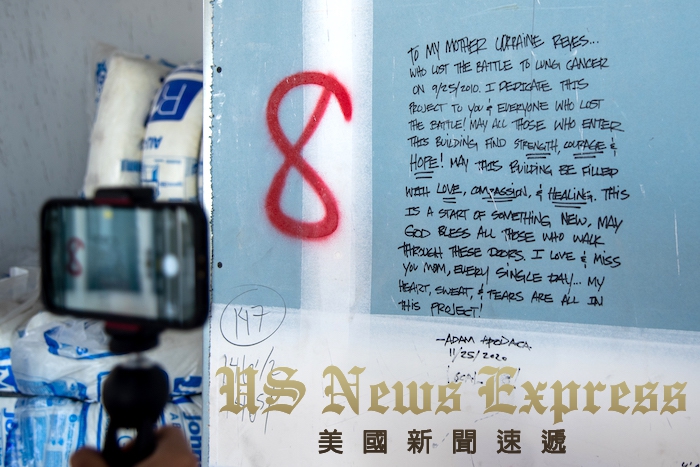 8
TO MY MOTHER LORRAINE REYES...
WHO LOST THE BATTLE TO LUNG CANCER
ON 9/25/2010. I DEDICATE THIS
PROJECT TO YOU & EVERYONE WHO LOST
THE BATTLE! MAY ALL THOSE WHO ENTER
THIS BUILDING FIND STRENGTH, COURAGE &
HOPE! MAY THIS BUILDING BE FILLED
WITH LOVE, COMPASSION, & HEALING. THIS
IS A START OF SOMETHING NEW, MAY
GOD BLESS ALL THOSE WHO WALK
THROUGH THESE DOORS. I LOVE & MISS
YOU MOM, EVERY SINGLE DAY... MY
HEART, SWEAT, & TEARS ARE ALL IN
THIS PROJECT!
-ADAM APODACA
11/25/2020
147
US News Express
美國新聞速遞